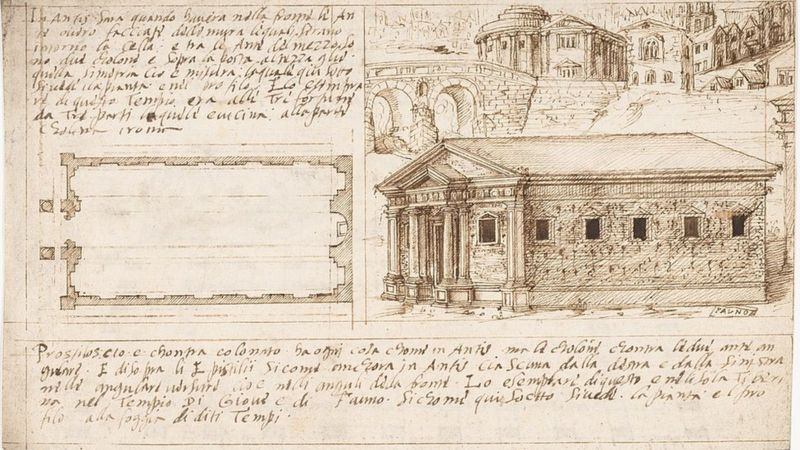 In Antis sara quando havera nella fronte le An
te overo facciate delle mura le quali serano
intorno la Cella: e tra le Ante del mezzo so
no due cholone e sopra la
quella, sinopra cio e misura, la quale qui sotto
si vede la pianta e nel profilo. E lo esempla
re di questo Tempio, era alle Tre fortune
da Tre parti la quale e vicina: alla parte
cholina
L FAUNO
Prospuosto e chontra colonato ha ogni cosa chome in Antis ma le cholone chontra le due ante an
gulare. E di sopra li E pistilii si come anchora in Antis e la Scima dalla destra e dalla Sinistra
nelle angulare versure cio e nelli anguli de la fronte. Lo esemplare di questo e ne lisola Tiberi
na nel Tempio di Giove e di Fauno. Si chome qui sotto si vede. la pianta e l pro
filo alla foggia di diti Tempi